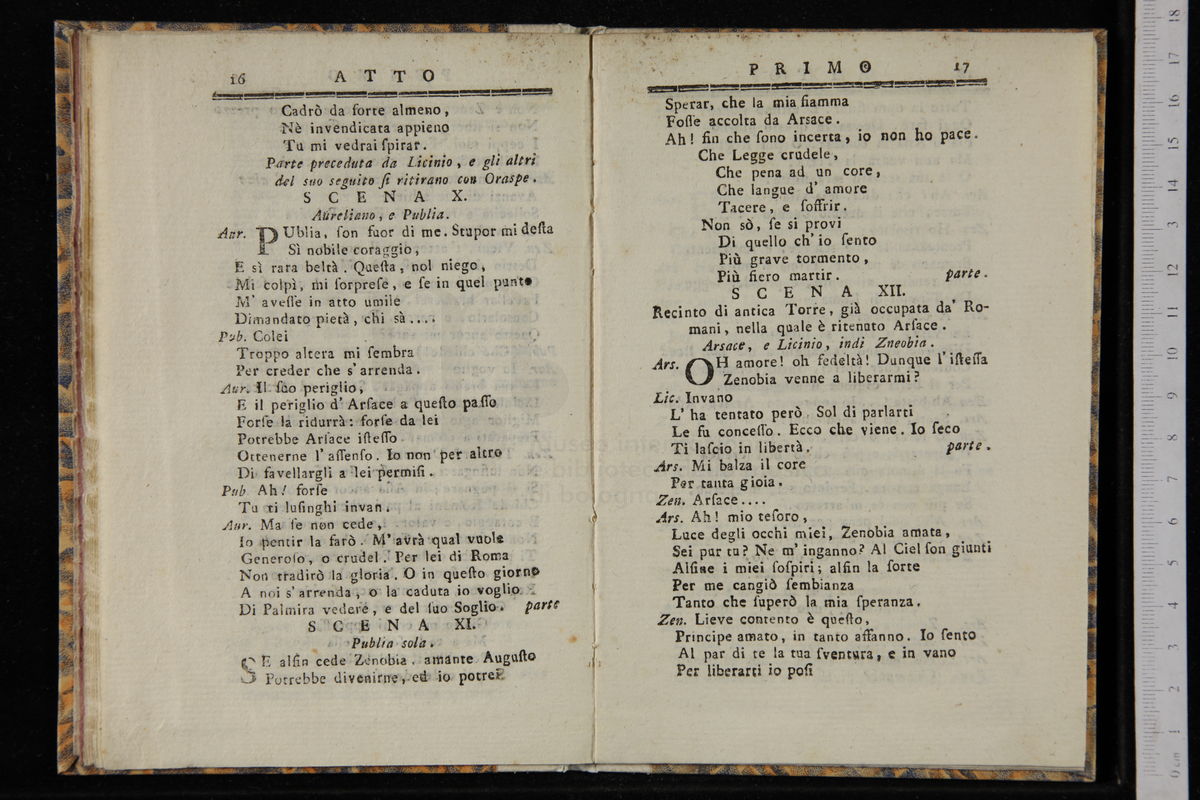 16 ATTO
Cadrò da forte almeno,
Nè invendicata appieno
Tu mi vedrai ſpirar.
Parte preceduta da Licinio, e gli altri
del suo seguito ſi ritirano con Oraspe.
SCENA X.
Aureliano, e Publia.
Aur. PUblia, ſon fuor di me. Stupor mi deſta
Sì nobile coraggio,
E sì rara beltà. Queſta, nol niego,
Mi colpì, mi ſorpreſe, e ſe in quel punto
M' aveſſe in atto umile
Dimandato pietà, chi sà....
Pub. Colei
Troppo altera mi ſembra
Per creder che s' arrenda.
Aur. Il ſuo periglio,
E il periglio d' Arſace a queſto paſſo
Forſe la ridurrà: forſe da lei
Potrebbe Arſace iſteſſo
Ottenerne l' aſſenſo. Io non per altro
Di favellargli a lei permiſi.
Pub. Ah! forſe
Tu ti luſinghi invan.
Aur. Ma ſe non cede,
Io pentir la farò. M' avrà qual vuole
Generoſo, o crudel. Per lei di Roma
Non tradirò la gloria. O in queſto giorno
A noi s' arrenda, o la caduta io voglio
Di Palmira vedere, e del ſuo Soglio. parte
SCENA XI.
Publia sola.
SE alfin cede Zenobia. amante Auguſto
Potrebbe divenirne, ed io potrei
PRIMO 17
Sperar, che la mia fiamma
Foſſe accolta da Arsace.
Ah! fin che ſono incerta, io non ho pace.
Che Legge crudele,
Che pena ad un core,
Che langue d' amore
Tacere, e ſoffrir.
Non sò, ſe si provi
Di quello ch' io ſento
Più grave tormento,
Più fiero martir. parte.
SCENA XII.
Recinto di antica Torre, già occupata da' Ro-
mani, nella quale è ritenuto Arſace.
Arsace, e Licinio, indi Zneobia.
Ars. OH amore! oh fedeltà! Dunque l' iſteſſa
Zenobia venne a liberarmi?
Lic. Invano
L' ha tentato però. Sol di parlarti
Le fu conceſſo. Ecco che viene. Io ſeco
Ti laſcio in libertà. parte.
Ars. Mi balza il core
Per tanta gioia.
Zen. Arſace....
Ars. Ah! mio teſoro,
Luce degli occhi miei, Zenobia amata,
Sei pur tu? Ne m' inganno? Al Ciel ſon giunti
Alfine i miei ſoſpiri; alfin la ſorte
Per me cangiò ſembianza
Tanto che ſuperò la mia ſperanza.
Zen. Lieve contento è queſto,
Principe amato, in tanto affanno. Io ſento
Al par di te la tua ſventura, e in vano
Per liberarti io poſi